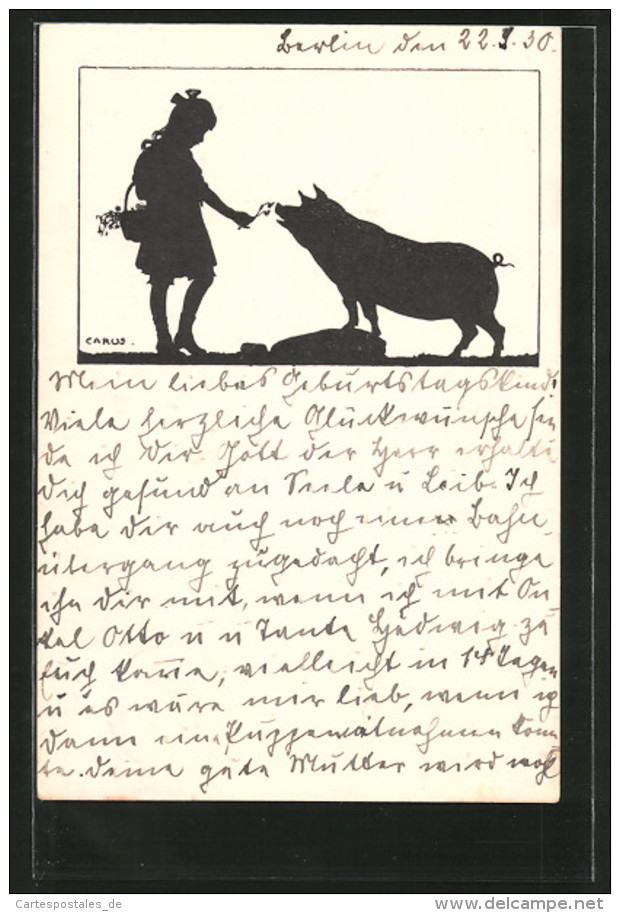 Berlin den 22.8.30.
CARUS.
Mein liebes Geburtstagskind!
Viele herzliche Glückwünsche sen
de ich Dir Gott der Herr erhalte
Dich gesund an Seele u Leib. Ich
habe Dir auch noch einen Bahn-
übergang zugedacht, ich bringe
ihn Dir mit, wenn ich mit On
kel Otto u u Tante Hedwig zu
Euch kome, vielleicht in 14 Tagen
u es wäre mir lieb, wenn ich
dann eine mitnehmen könn
te. Deine gute Mutter wird wohl
Cartespostales_de
www.delcampe.net